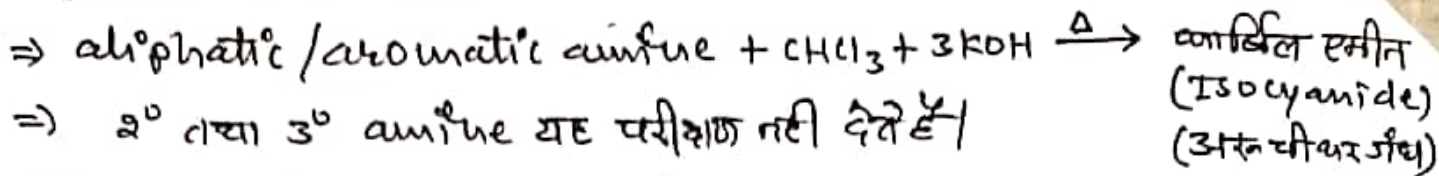 ⇒ aliphatic/aromatic amine + CHCl3 + 3KOH —Δ→ कार्बिल एमीन
(Isocyanide)
⇒ 2° तथा 3° amine यह परीक्षण नही देते है।
(अरूचीकर गंध)